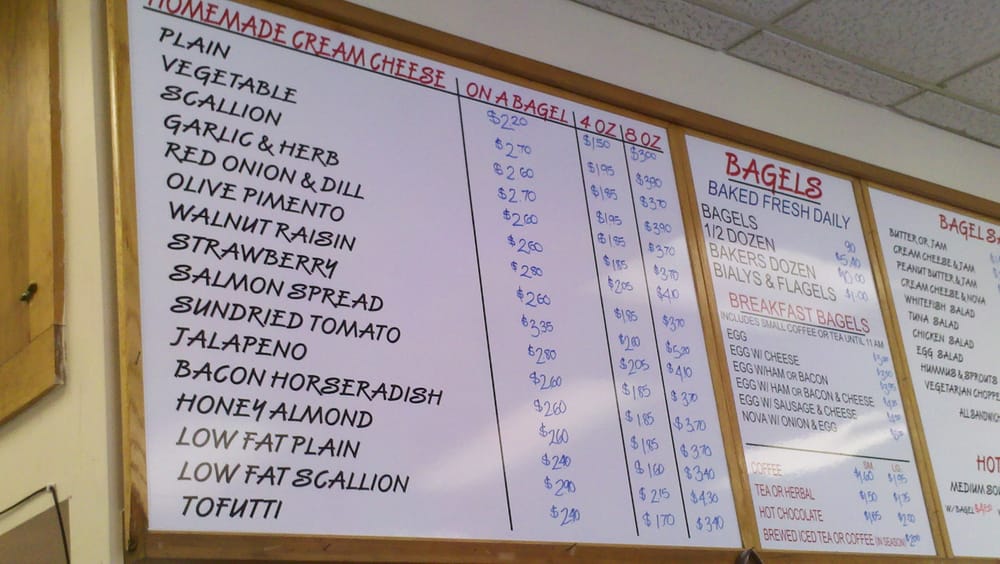 HOMEMADE CREAM CHEESE ON A BAGEL 4 OZ 8 OZ
PLAIN $2.20 $1.50 $3.00
VEGETABLE $2.70 $1.95 $3.90
SCALLION $2.60 $1.85 $3.70
GARLIC & HERB $2.70 $1.95 $3.90
RED ONION & DILL $2.60 $1.85 $3.70
OLIVE PIMENTO $2.60 $1.85 $3.70
WALNUT RAISIN $2.80 $2.05 $4.10
STRAWBERRY $2.60 $1.85 $3.70
SALMON SPREAD $3.35 $2.60 $5.20
SUNDRIED TOMATO $2.80 $2.05 $4.10
JALAPENO $2.60 $1.85 $3.70
BACON HORSERADISH $2.60 $1.85 $3.70
HONEY ALMOND $2.60 $1.85 $3.70
LOW FAT PLAIN $2.40 $1.60 $3.40
LOW FAT SCALLION $2.90 $2.15 $4.30
TOFUTTI $2.40 $1.70 $3.40
BAGELS
BAKED FRESH DAILY
BAGELS 90
1/2 DOZEN $5.40
BAKERS DOZEN $10.00
BIALYS & FLAGELS $1.00
BREAKFAST BAGELS
INCLUDES SMALL COFFEE OR TEA UNTIL 11 AM
EGG
EGG W/ CHEESE
EGG W/HAM OR BACON
EGG W/ HAM OR BACON & CHEESE
EGG W/ SAUSAGE & CHEESE
NOVA W/ ONION & EGG
SM. LG.
COFFEE $1.60 $1.95
TEA OR HERBAL $1.50 $1.75
HOT CHOCOLATE $1.85 $2.00
BREWED ICED TEA OR COFFEE (IN SEASON) $2.00
BAGEL
BUTTER OR JAM
CREAM CHEESE & JAM
PEANUT BUTTER & JAM
CREAM CHEESE & NOVA
WHITEFISH SALAD
TUNA SALAD
CHICKEN SALAD
EGG SALAD
HUMMUS & SPROUTS
VEGETARIAN
ALL
HOT
MEDIUM
W/ BAGEL